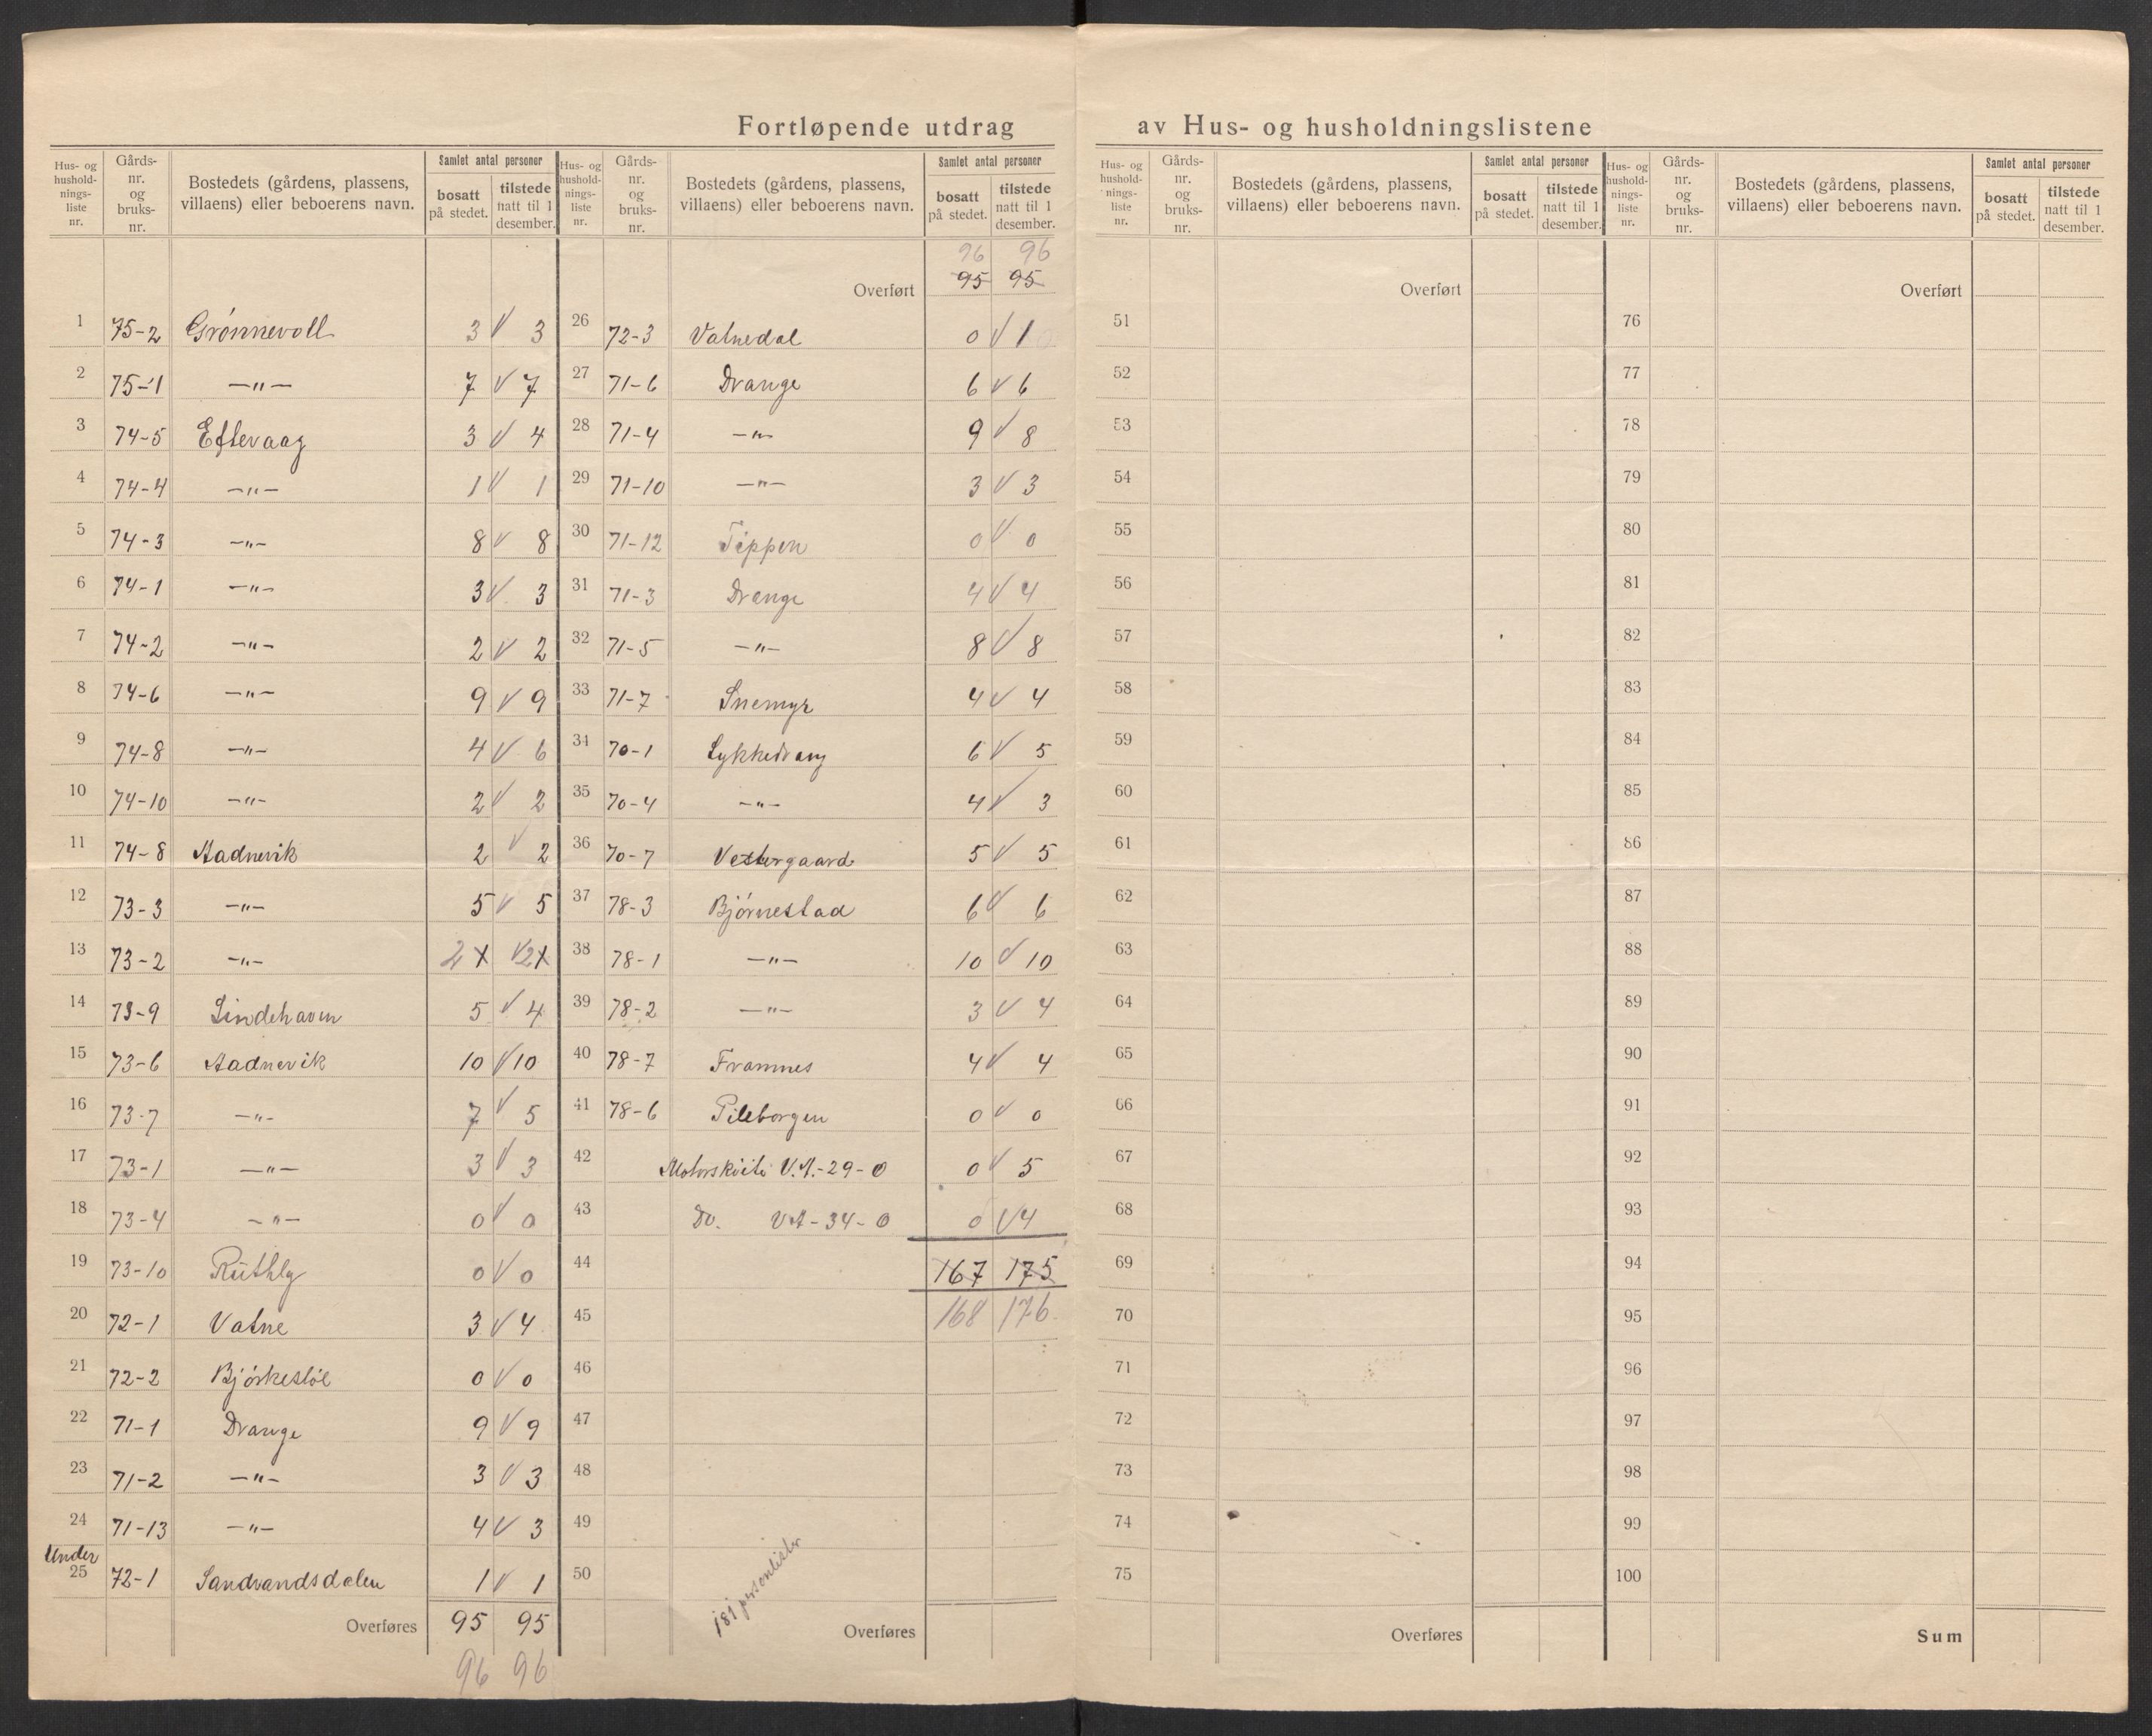 Fortløpende utdrag av Hus- og husholdningslistene
Hus- og hushold- nings- liste nr. | Gårds- nr. og bruks- nr. | Bostedets (gårdens, plassens, villaens) eller beboerens navn. | Samlet antal personer | bosatt på stedet. | tilstede natt til 1 desember.
1 75-2 Grønnevoll 3 V 3
2 75-1 —"— 7 V 7
3 74-5 Eftevaag 3 V 4
4 74-4 —"— 1 V 1
5 74-3 —"— 8 V 8
6 74-1 —"— 3 V 3
7 74-2 —"— 2 V 2
8 74-6 —"— 9 V 9
9 74-8 —"— 4 V 6
10 74-10 —"— 2 V 2
11 74-8 Aadnevik 2 V 2
12 73-3 —"— 5 V 5
13 73-2 —"— 2 X V 2 X
14 73-9 Lindehaven 5 V 4
15 73-6 Aadnevik 10 V 10
16 73-7 —"— 7 V 5
17 73-1 —"— 3 V 3
18 73-4 —"— 0 V 0
19 73-10 Rüthly 0 V 0
20 72-1 Vatne 3 V 4
21 72-2 Bjørkestøl 0 V 0
22 71-1 Drange 9 V 9
23 71-2 —"— 3 V 3
24 71-13 —"— 4 V 3
Under
25 72-1 Sandvandsdalen 1 V 1
Overføres 95 95
96 96
Hus- og hushold- nings- liste nr. | Gårds- nr. og bruks- nr. | Bostedets (gårdens, plassens, villaens) eller beboerens navn. | Samlet antal personer | bosatt på stedet. | tilstede natt til 1 desember.
96 96
Overført 95 95
26 72-3 Vatnedal 0 V 1 0
27 71-6 Drange 6 V 6
28 71-4 —"— 9 V 8
29 71-10 —"— 3 V 3
30 71-12 Tippen 0 V 0
31 71-3 Drange 4 V 4
32 71-5 —"— 8 V 8
33 71-7 Snemyr 4 V 4
34 70-1 Lykkedrang 6 V 5
35 70-4 —"— 4 V 3
36 70-7 Vestergaard 5 V 5
37 78-3 Bjørnestad 6 V 6
38 78-1 —"— 10 V 10
39 78-2 —"— 3 V 4
40 78-7 Framnes 4 V 4
41 78-6 Pileborgen 0 V 0
42 Motorskøite V.A.-29-O 0 V 5
43 Do. V.A-34-O 0 V 4
44 167 175
45 168 176
46
47
48
49
50
181 personlister
Overføres
Hus- og hushold- nings- liste nr. | Gårds- nr. og bruks- nr. | Bostedets (gårdens, plassens, villaens) eller beboerens navn. | Samlet antal personer | bosatt på stedet. | tilstede natt til 1 desember.
Overført
51
52
53
54
55
56
57
58
59
60
61
62
63
64
65
66
67
68
69
70
71
72
73
74
75
Overføres
Hus- og hushold- nings- liste nr. | Gårds- nr. og bruks- nr. | Bostedets (gårdens, plassens, villaens) eller beboerens navn. | Samlet antal personer | bosatt på stedet. | tilstede natt til 1 desember.
Overført
76
77
78
79
80
81
82
83
84
85
86
87
88
89
90
91
92
93
94
95
96
97
98
99
100
Sum